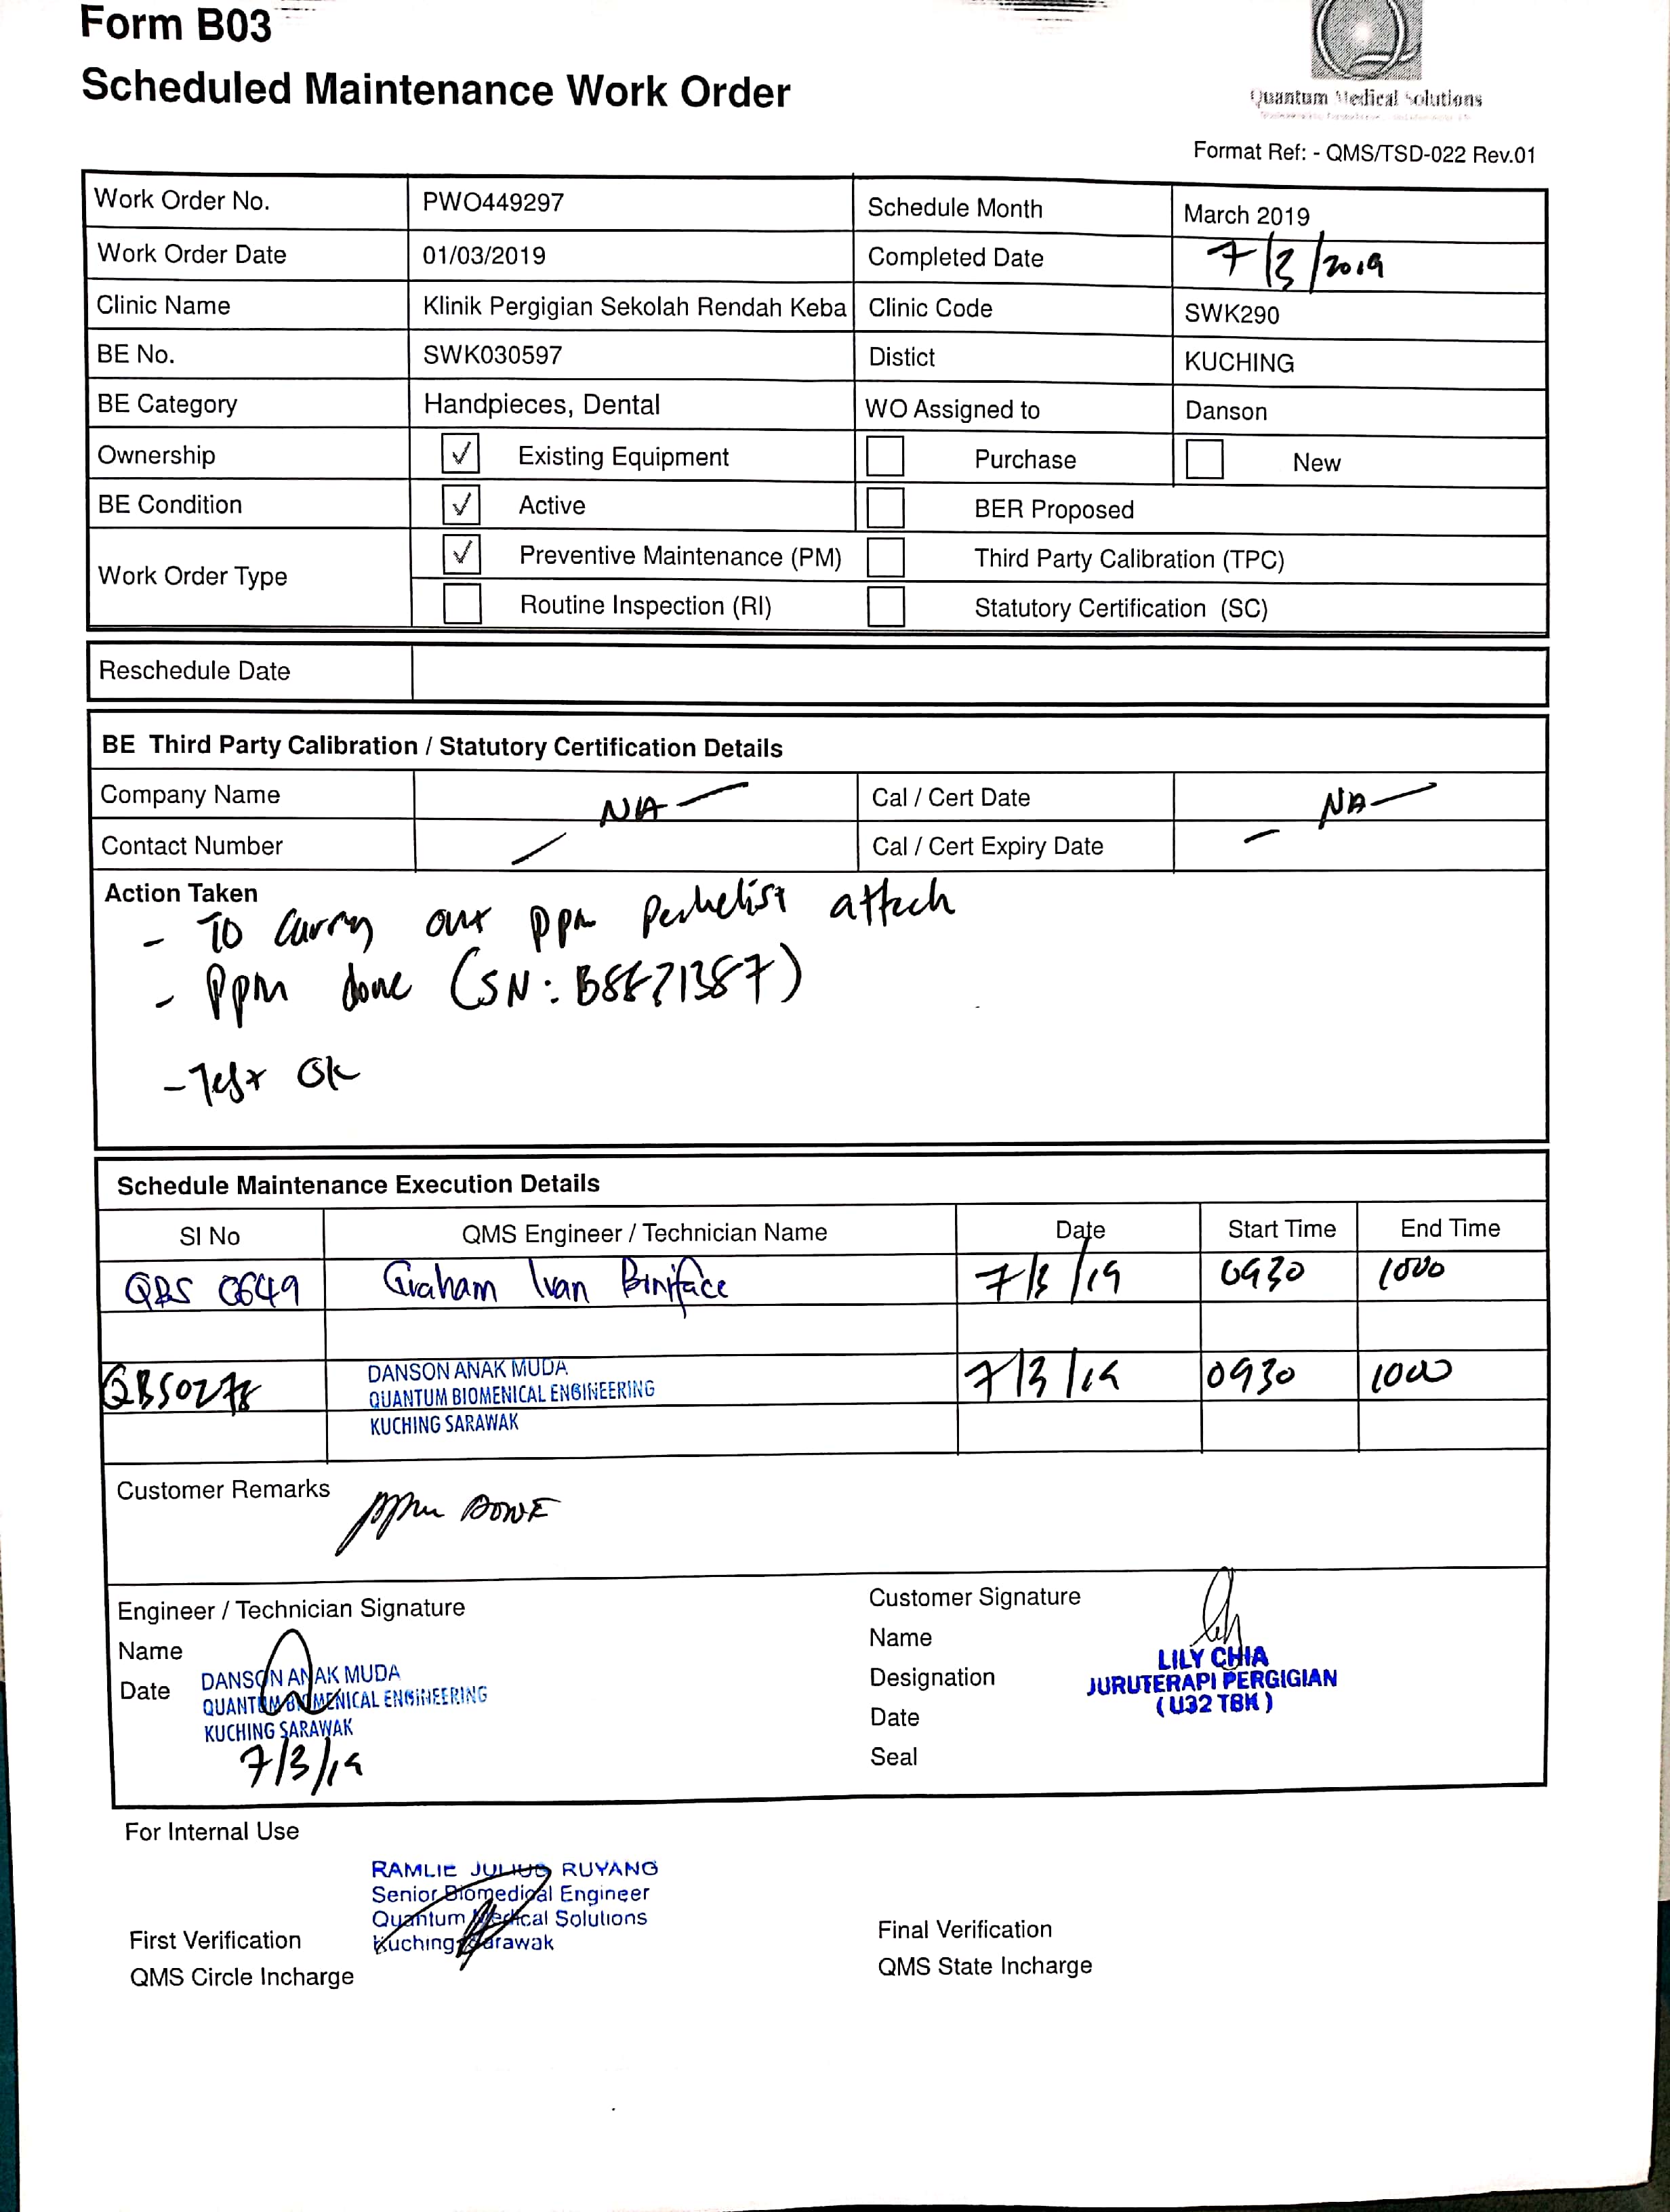 Form B03
Scheduled Maintenance Work Order
Quantum Medical Solutions
Format Ref: - QMS/TSD-022 Rev.01
Work Order No. PWO449297 Schedule Month March 2019
Work Order Date 01/03/2019 Completed Date 7/3/2019
Clinic Name Klinik Pergigian Sekolah Rendah Keba Clinic Code SWK290
BE No. SWK030597 Distict KUCHING
BE Category Handpieces, Dental WO Assigned to Danson
Ownership ✓ Existing Equipment Purchase New
BE Condition ✓ Active BER Proposed
Work Order Type ✓ Preventive Maintenance (PM) Third Party Calibration (TPC)
Routine Inspection (RI) Statutory Certification (SC)
Reschedule Date
BE Third Party Calibration / Statutory Certification Details
Company Name NA Cal / Cert Date NA
Contact Number Cal / Cert Expiry Date
Action Taken
- To carry out ppm attach
- Ppm done (SN:
- Test Ok
Schedule Maintenance Execution Details
SI No QMS Engineer / Technician Name Date Start Time End Time
QBS 0649 Graham Ivan Biniface 7/3/19 0930 1000
QBS0278 DANSON ANAK MUDA 7/3/19 0930 1000
QUANTUM BIOMENICAL ENGINEERING
KUCHING SARAWAK
Customer Remarks ppm DONE
Engineer / Technician Signature Customer Signature
Name Name LILY CHIA
Date DANSON ANAK MUDA Designation JURUTERAPI PERGIGIAN
QUANTUM BIOMENICAL ENGINEERING Date (U32 TBK)
KUCHING SARAWAK Seal
7/3/19
For Internal Use
RAMLIE JULIUS RUYANG
Senior Biomedical Engineer
Quantum Medical Solutions
Kuching Sarawak
First Verification Final Verification
QMS Circle Incharge QMS State Incharge